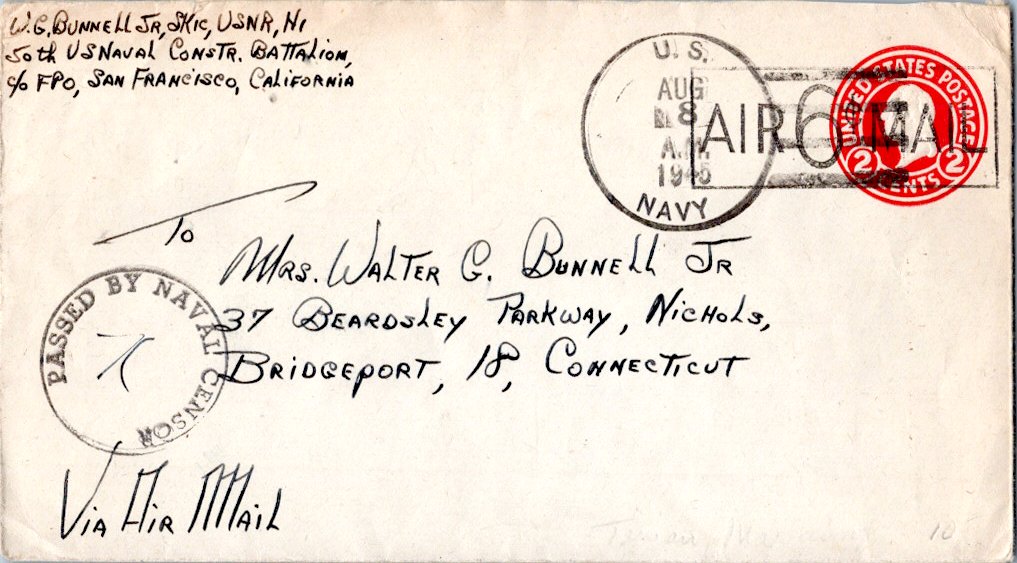 W.G. BUNNELL JR, SK1C, USNR, H1
50th US NAVAL CONSTR. BATTALION,
c/o FPO, SAN FRANCISCO, CALIFORNIA
U. S.
AUG
8
A.M.
1945
NAVY
AIR 6¢ MAIL
UNITED STATES POSTAGE
2 CENTS 2
To
MRS. WALTER G. BUNNELL JR
37 BEARDSLEY PARKWAY, NICHOLS,
BRIDGEPORT, 18, CONNECTICUT
PASSED BY NAVAL CENSOR
VIA AIR MAIL
10